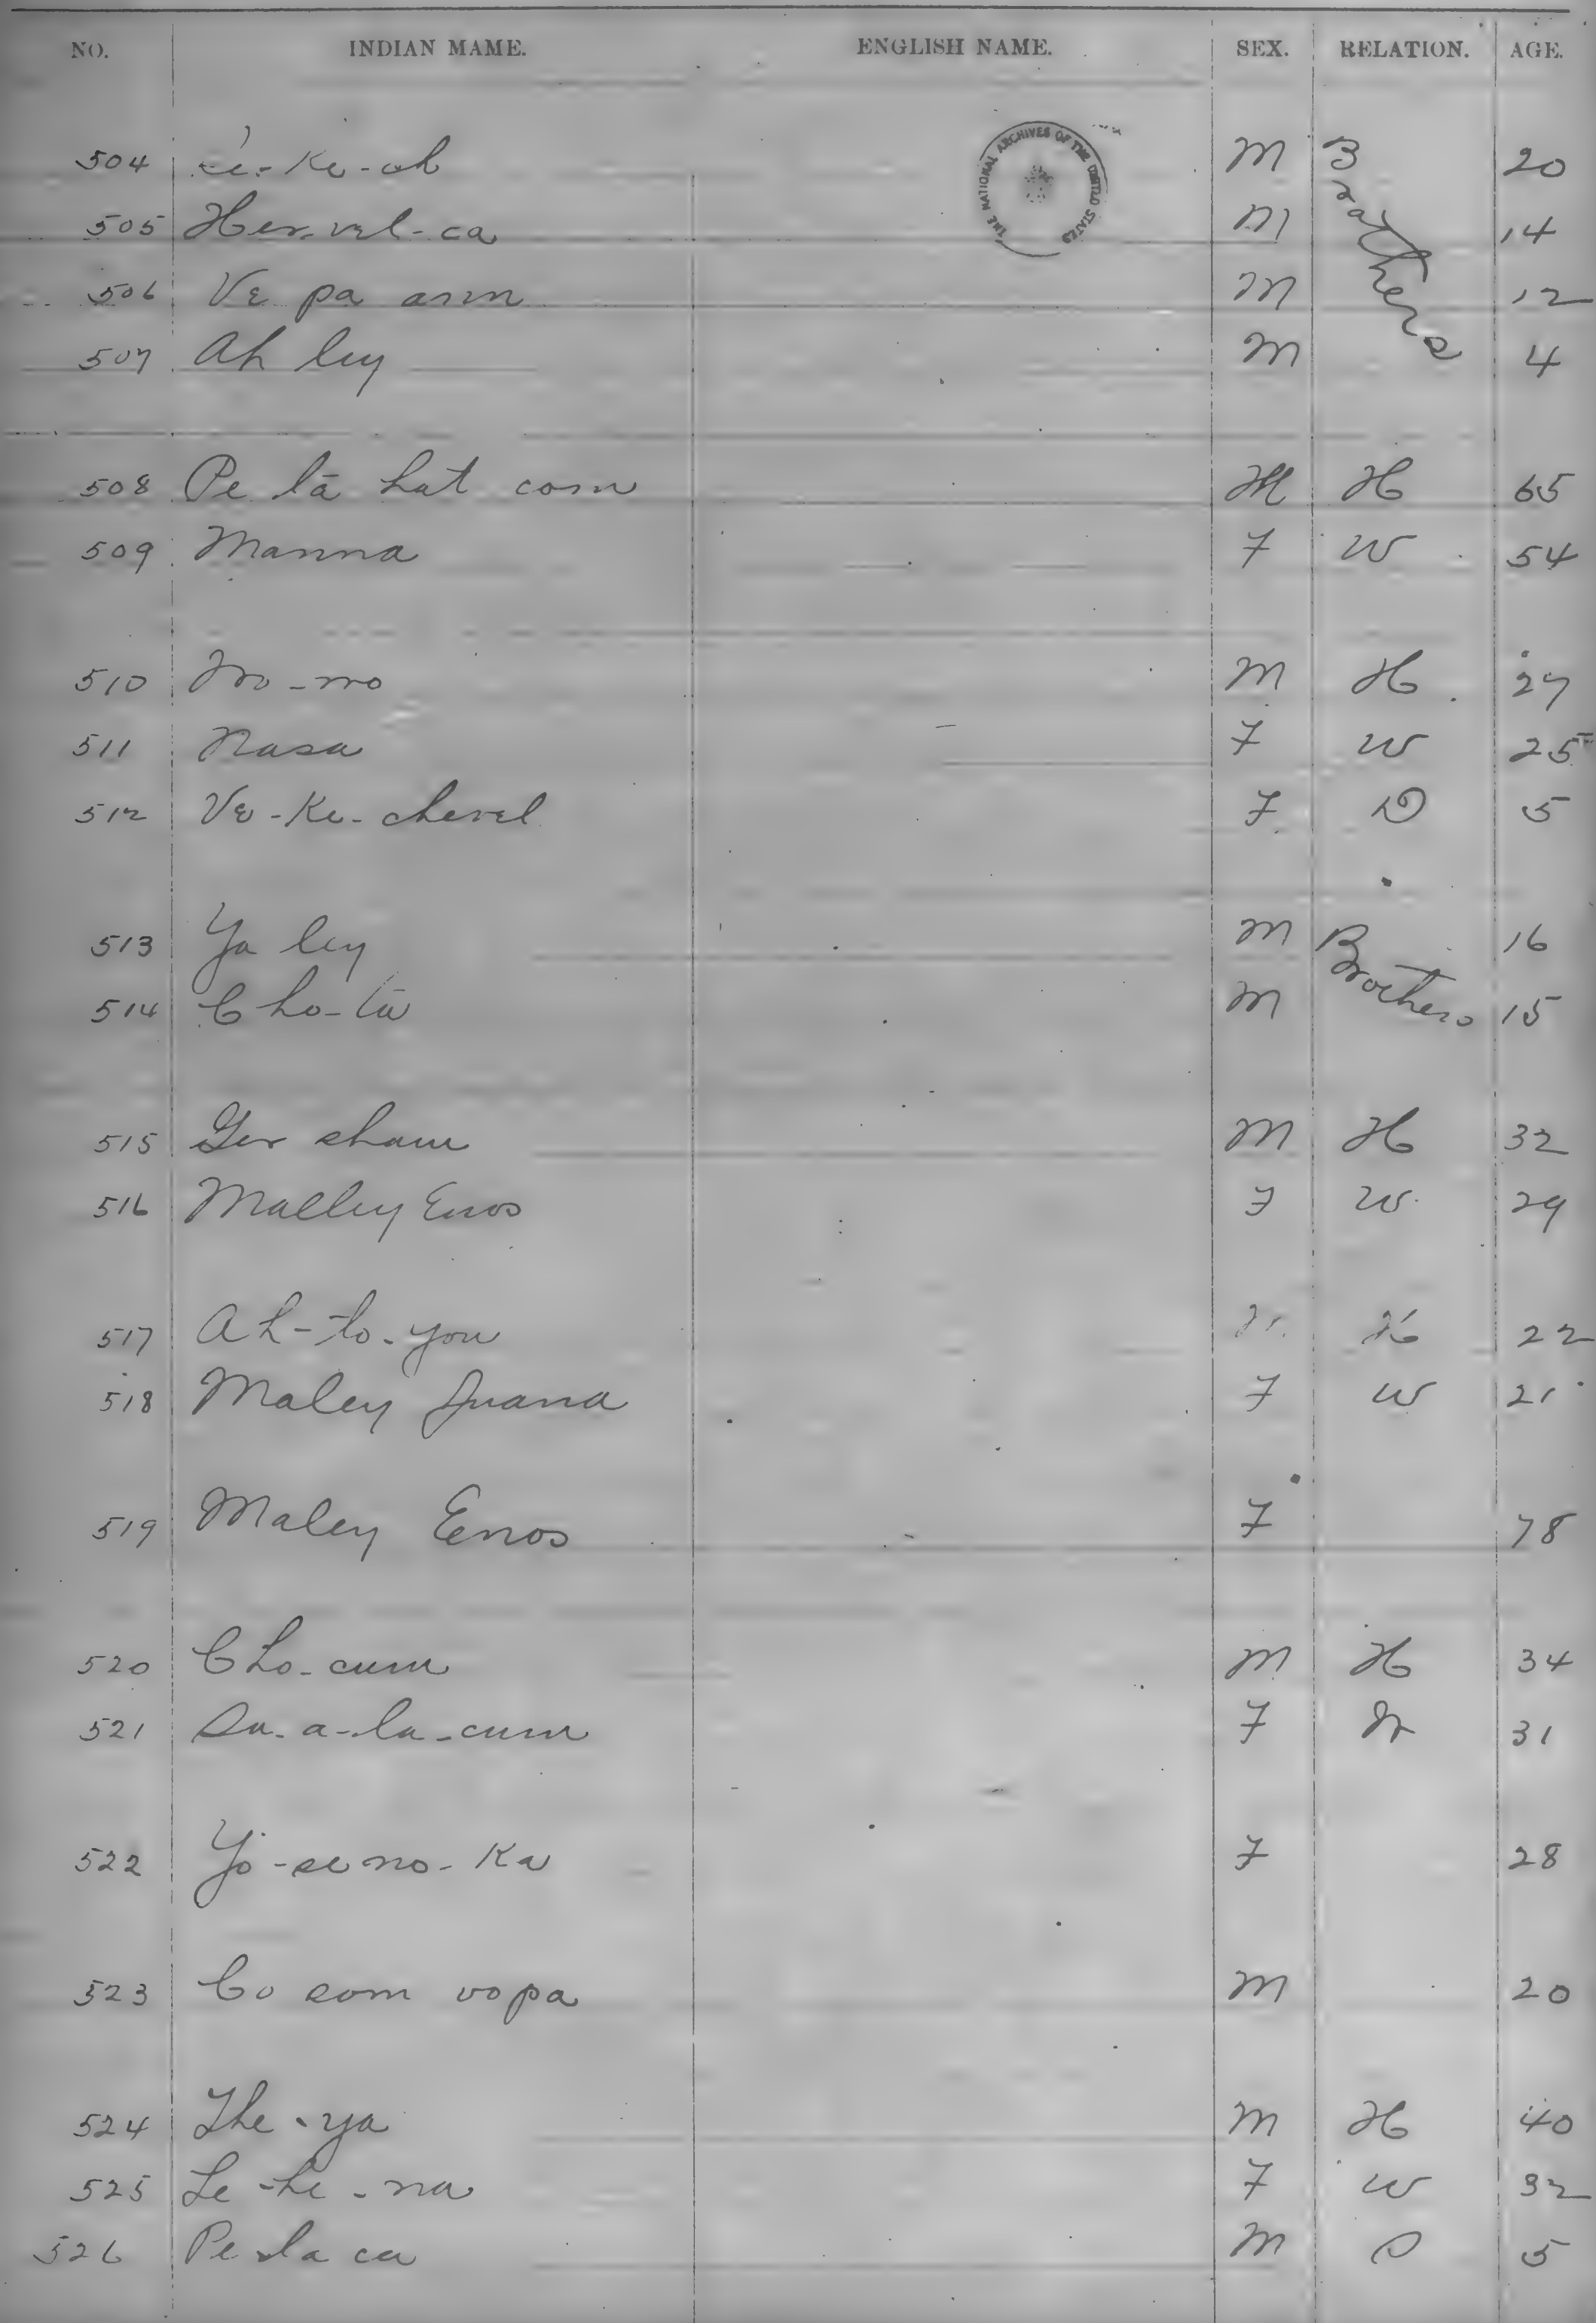 NO. INDIAN MAME. ENGLISH NAME. SEX. RELATION. AGE.
THE NATIONAL ARCHIVES OF THE UNITED STATES
504 M Brothers 20
505 Her-vel-ca M 14
506 Ve pa arm M 12
507 Ah ley M 4
508 Pe lā hat com M H 65
509 Manna F W 54
510 Mo-mo M H 27
511 Nasa F W 25
512 Ve-Ke-chevel F D 5
513 Ya ley M Brothers 16
514 Cho-tā M 15
515 Ger sham M H 32
516 Malley Enos F W 29
517 Ah-to-you M H 22
518 Maley Juana F W 21
519 Maley Enos F 78
520 Cho-cum M H 34
521 Su-a-la-cum F W 31
522 Yo-se no-Ka F 28
523 Co som vopa M 20
524 The-ya M H 40
525 Le-he-na F W 32
526 Pe la ca M S 5